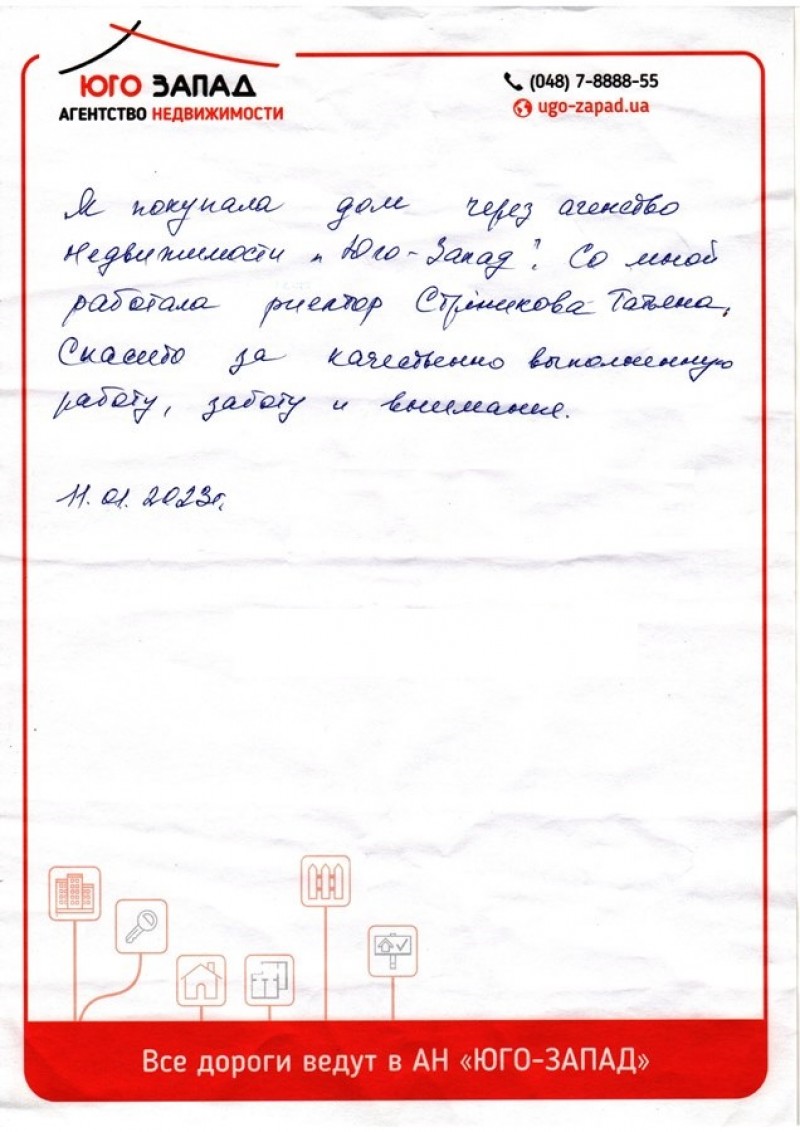 ЮГО ЗАПАД
АГЕНТСТВО НЕДВИЖИМОСТИ
(048) 7-8888-55
ugo-zapad.ua
Я покупала дом через агенство
недвижимости "Юго-Запад". Со мной
работала риелтор Стрникова Татьяна.
Спасибо за качественно выполненную
работу, заботу и внимание.
11.01.2023г.
Все дороги ведут в АН «ЮГО-ЗАПАД»